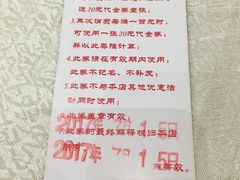 送20元代金券壹张;
3.其次消费每满一百元时,
可使用一张20元代金券
并以此类推计算;
4.此券请在有效期内使用;
5.此券不记名、不补发;
6.此券不与本店其他优惠活
动同时使用;
此券盖章有效;
此券的最终解释权归本店
所有
2017年
1 5日
2017年
1 5日